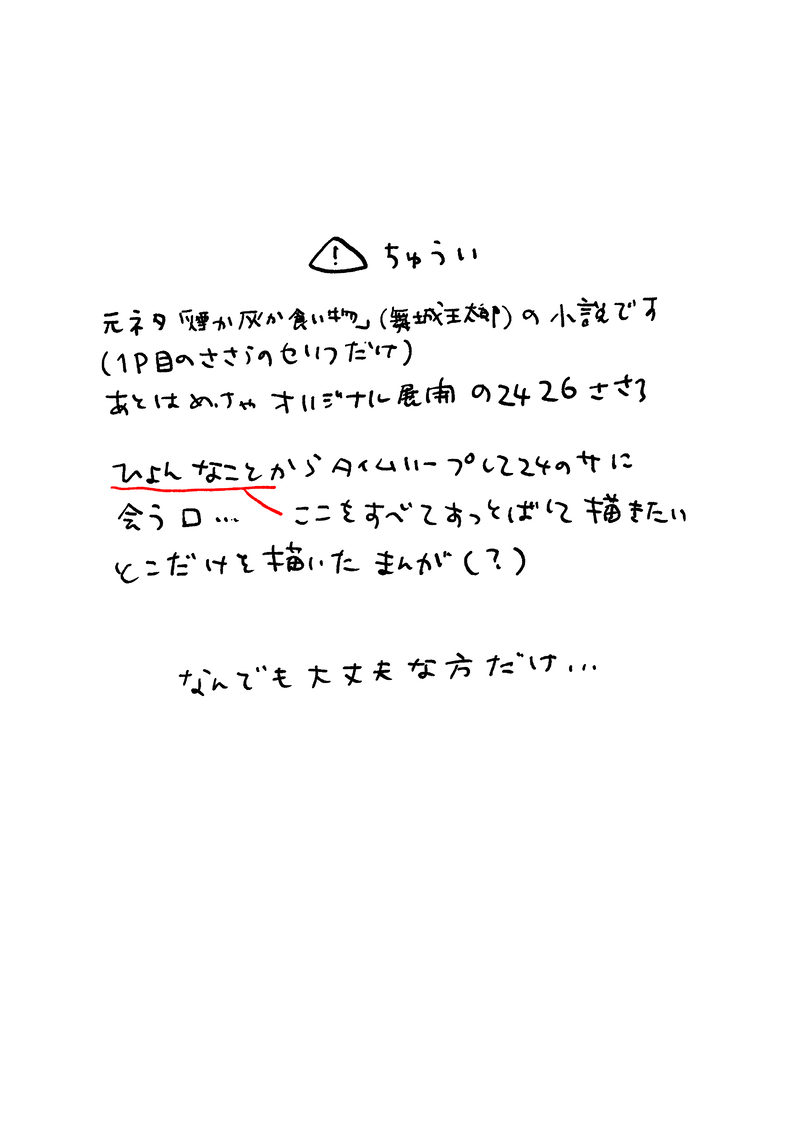 ⚠ ちゅうい
元ネタ「煙か灰か食い物」(舞城王太郎)の小説です
(1P目のささらのセリフだけ)
あとはめっちゃオリジナル展開の2426ささろ
ひょんなことからタイムリープして24のサに
会うロ… ここをすべてすっとばして描きたい
とこだけを描いたまんが(?)
なんでも大丈夫な方だけ…